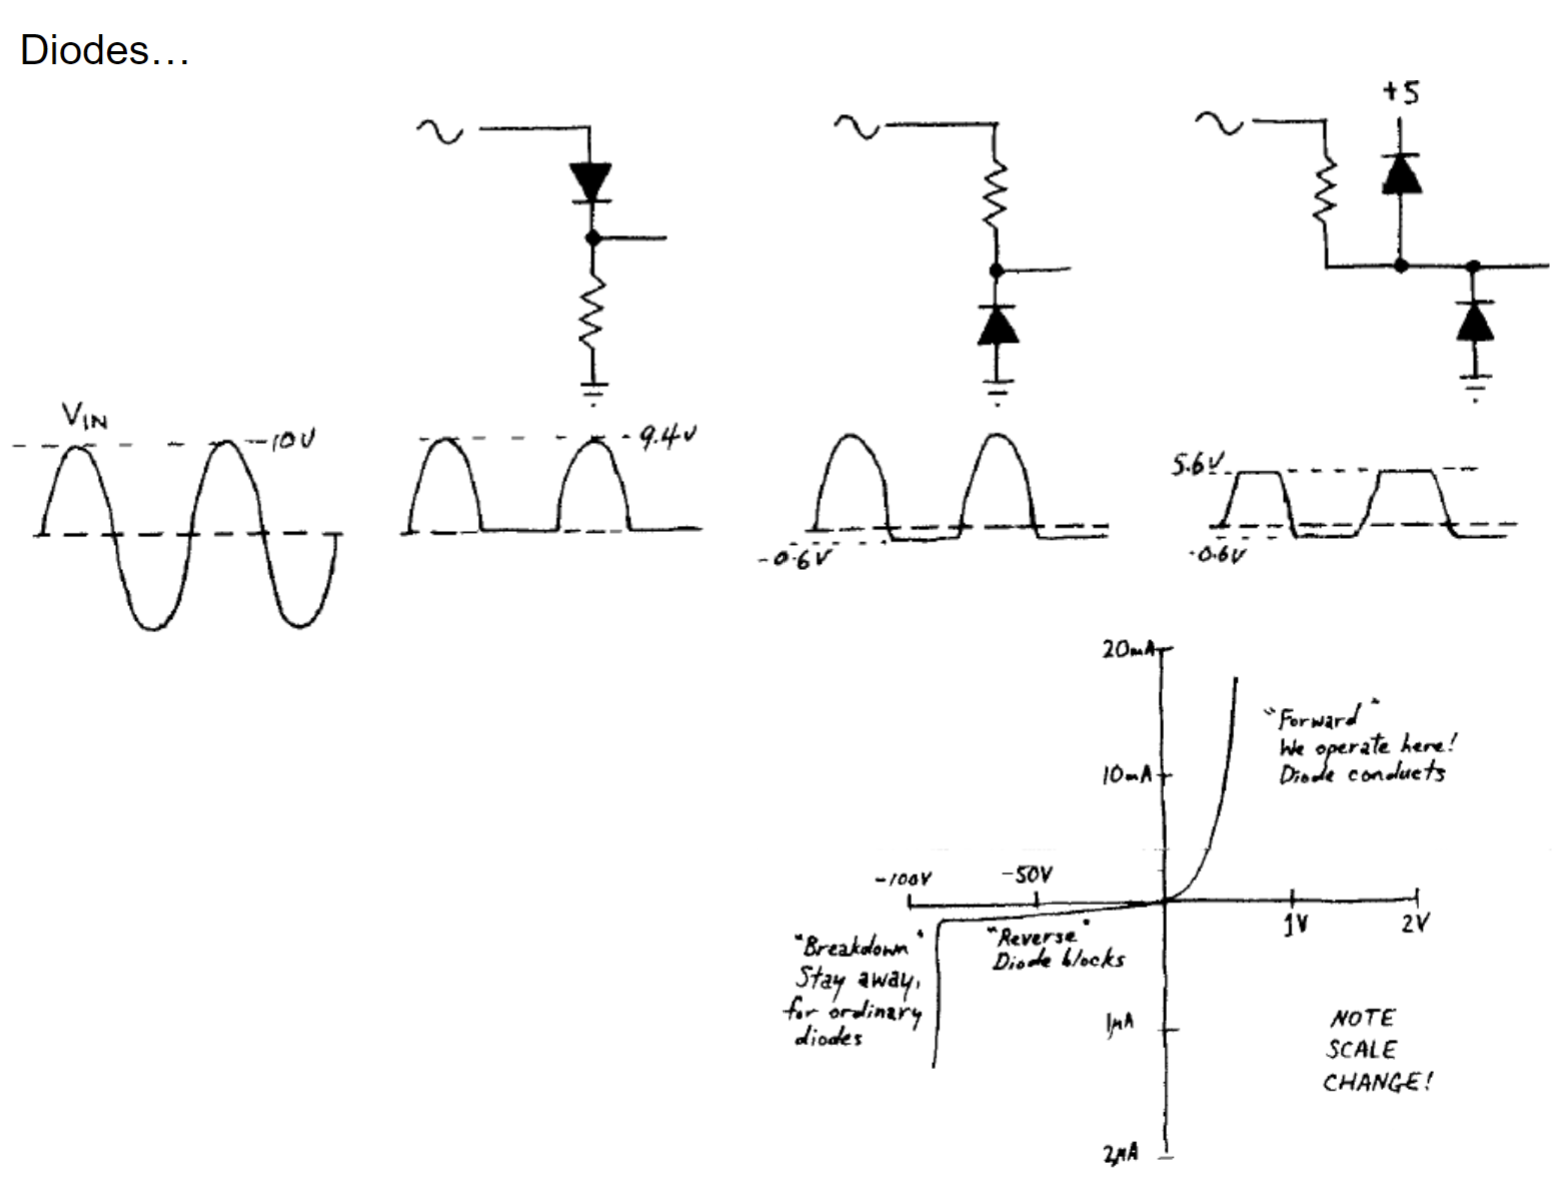 Diodes…
+5
VIN
10V
9.4V
-0.6V
5.6V
-0.6V
20mA
10mA
"Forward"
We operate here!
Diode conducts
-100V
-50V
1V
2V
"Breakdown"
Stay away,
for ordinary
diodes
"Reverse"
Diode blocks
1μA
2μA
NOTE
SCALE
CHANGE!